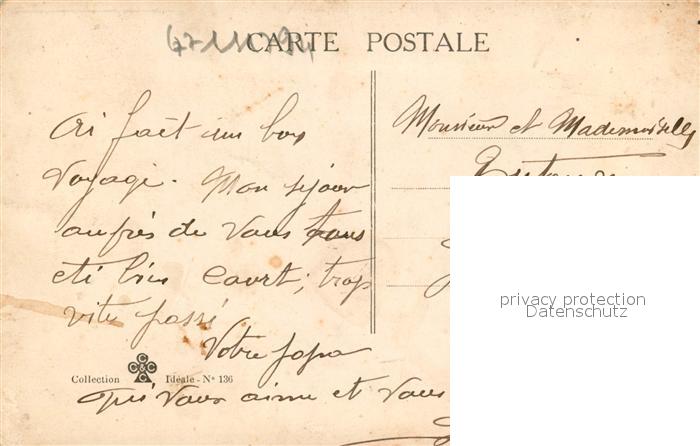 CARTE POSTALE
Ai fait un bon
voyage. Mon séjour
auprès de vous tous
été bien court; trop
vite passé
Votre papa
qui vous aime et vous
Monsieur et Mademoiselle
privacy protection
Datenschutz
CCCC
Collection Idéale - N° 136